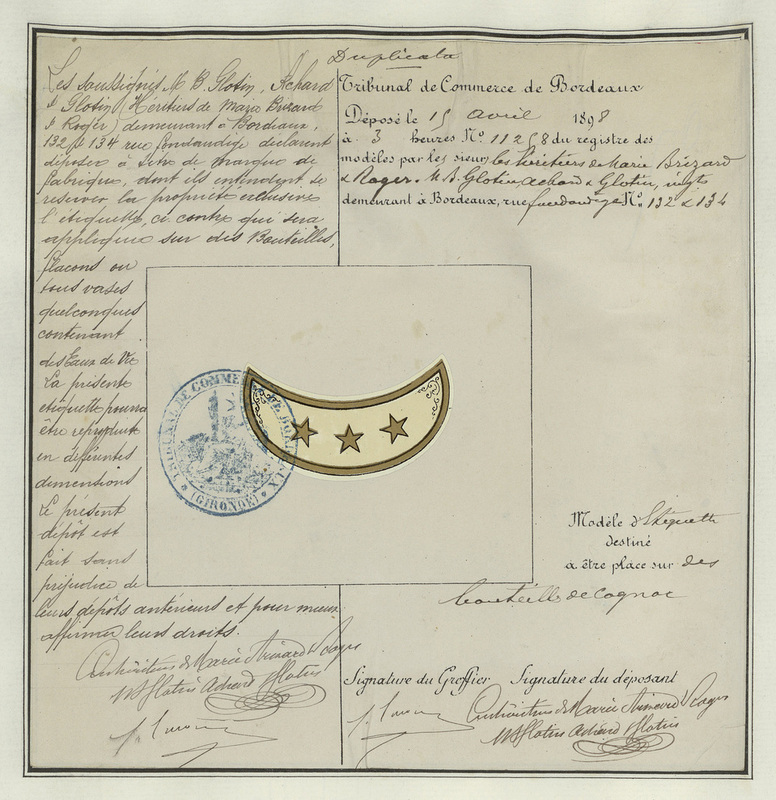 Duplicata
Les soussignés M. B. Glotin, Achard
& Glotin (Héritiers de Marie Brizard
& Roger) demeurant à Bordeaux,
132 & 134 rue fondaudège déclarent
déposer à titre de marque de
fabrique, dont ils entendent se
réserver la propriété exclusive
l'étiquette, ci contre qui sera
appliquée sur des Bouteilles,
flacons ou
tous vases
quelconques
contenant
des Eaux de Vie
La présente
étiquette pourra
être reproduite
en différentes
dimensions
Le présent
dépôt est
fait sans
préjudice de
leurs dépôts antérieurs et pour mieux
affirmer leurs droits.
héritiers de Marie Brizard & Roger
MB Glotin Achard & Glotin
Tribunal de Commerce de Bordeaux
Déposé le 15 avril 1898
à 3 heures No. 11258 du registre des
modèles par les sieurs les héritiers de Marie Brizard
& Roger. M. B. Glotin, Achard & Glotin,
demeurant à Bordeaux, rue fondaudège No. 132 & 134
TRIBUNAL DE COMMERCE DE BORDEAUX
(GIRONDE)
Modèle d'Etiquette
destiné
à être placé sur des
bouteilles de Cognac
Signature du Greffier Signature du déposant
héritiers de Marie Brizard & Roger
MB Glotin Achard & Glotin